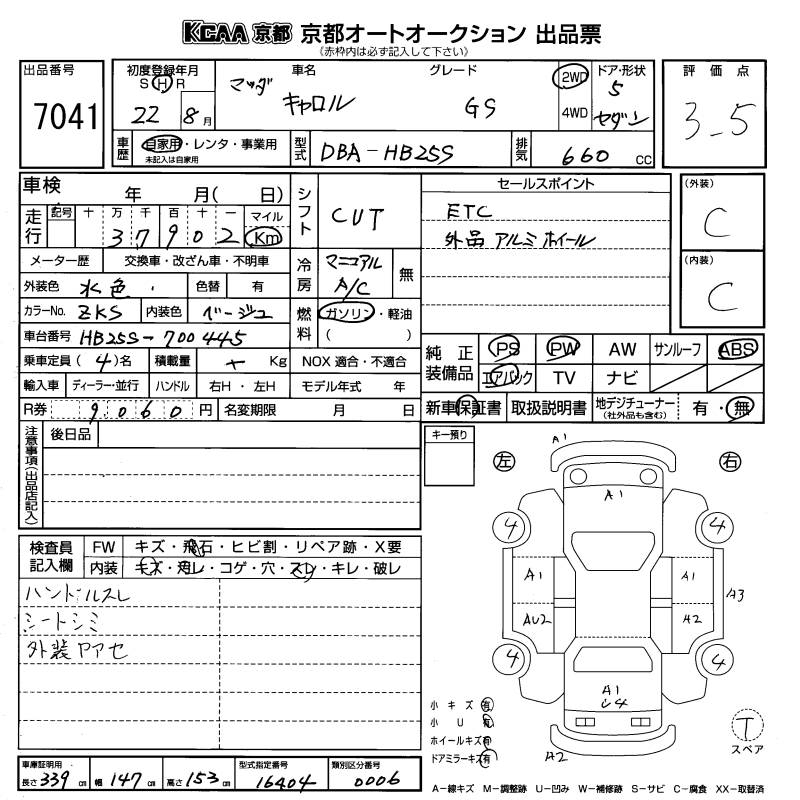 KCAA 京都 京都オートオークション 出品票
(赤枠内は必ず記入して下さい)
出品番号
7041
初度登録年月
S H R
22 8 月
車名
マツダ キャロル
グレード
GS
2WD
4WD
ドア・形状
5
セダン
評価点
3.5
車歴
自家用・レンタ・事業用
未記入は自家用
型式
DBA-HB25S
排気
660 cc
車検 年 月( 日)
走行
記号 十 万 千 百 十 一 マイル
3 7 9 0 2 Km
シフト
CVT
メーター歴 交換車・改ざん車・不明車
冷房
マニュアル
A/C
無
外装色 水色 色替 有
カラーNo. ZKS 内装色 ベージュ
燃料
ガソリン・軽油
( )
車台番号 HB25S-700445
乗車定員(4)名 積載量 Kg NOX 適合・不適合
輸入車 ディーラー・並行 ハンドル 右H・左H モデル年式 年
R券 9060 円 名変期限 月 日
セールスポイント
ETC
外品 アルミホイール
(外装)
C
(内装)
C
純正装備品
PS PW AW サンルーフ ABS
エアバック TV ナビ
新車保証書 取扱説明書 地デジチューナー(社外品も含む) 有・無
注意事項(出品店記入)
後日品
キー預り
検査員記入欄
FW キズ・飛石・ヒビ割・リペア跡・X要
内装 キズ・汚レ・コゲ・穴・スレ・キレ・破レ
ハンドルスレ
シートシミ
外装ヤケアセ
左 右
A1
A1
4 4
A1 A1
A3
AU2 A2
4 4
A1
U4
A2
小キズ 有
小U 有
ホイールキズ 有
ドアミラーキズ 有
T
スペア
車庫証明用
長さ 339 cm 幅 147 cm 高さ 153 cm
型式指定番号
16404
類別区分番号
0006
A-線キズ M-調整跡 U-凹み W-補修跡 S-サビ C-腐食 XX-取替済